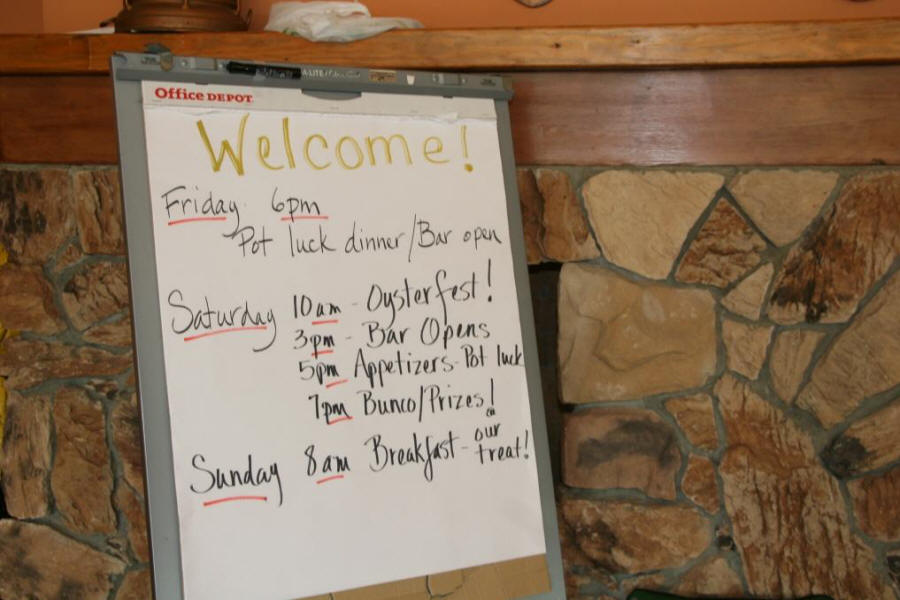 Office DEPOT
Welcome!
Friday 6pm
Pot luck dinner/Bar open
Saturday 10am - Oysterfest!
3pm - Bar Opens
5pm Appetizers-Pot luck
7pm Bunco/Prizes!
Sunday 8am Breakfast - our treat!